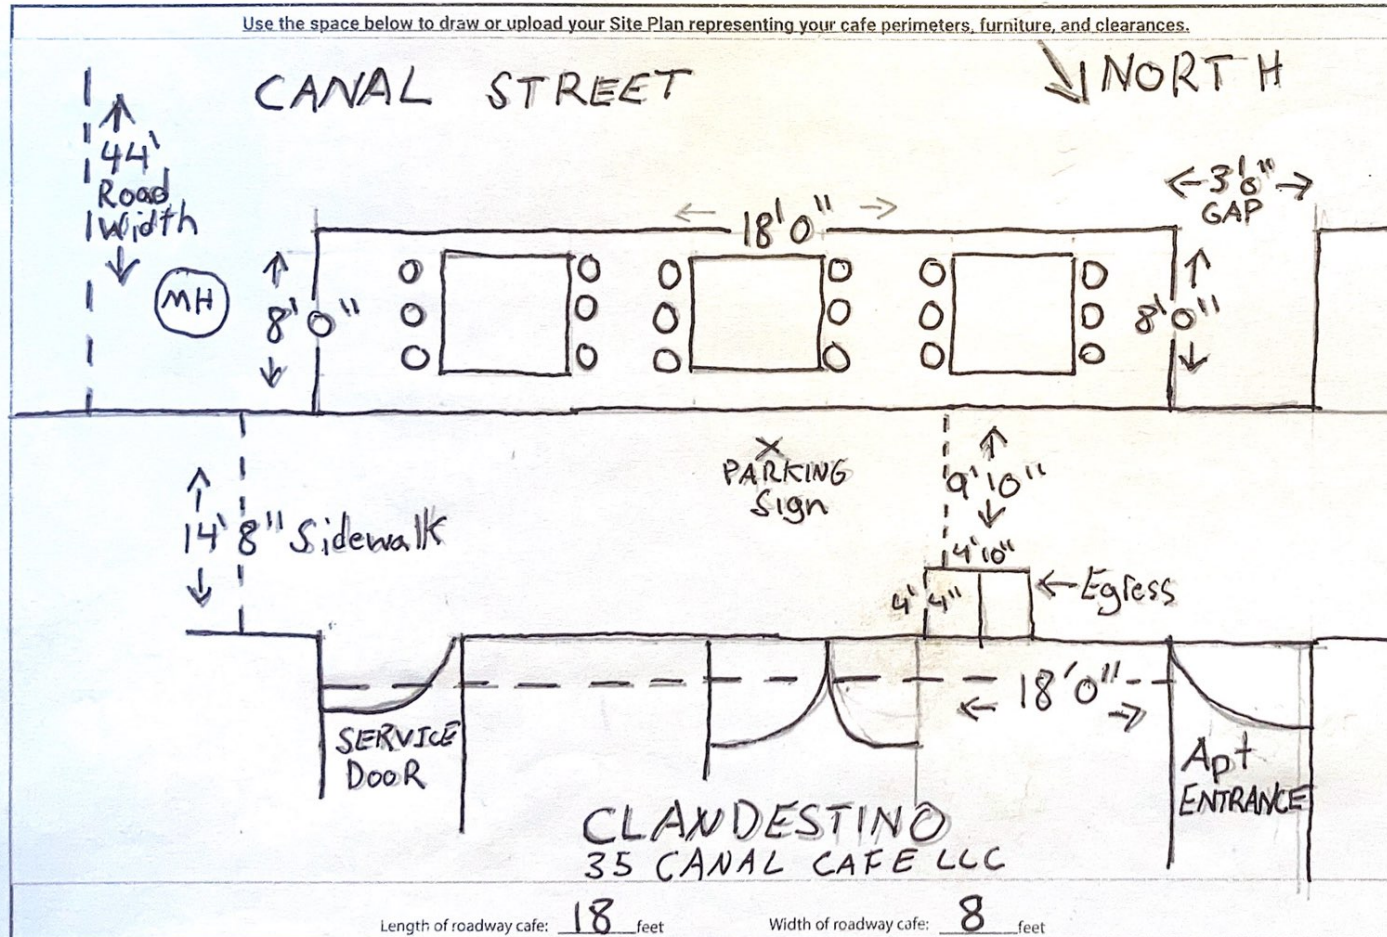 Use the space below to draw or upload your Site Plan representing your cafe perimeters, furniture, and clearances.
CANAL STREET
NORTH
44'
Road
Width
3'0"
GAP
18'0"
MH
8'0"
8'0"
PARKING
Sign
9'10"
14'8" Sidewalk
4'10"
4'4"
Egress
18'0"
SERVICE
DOOR
Apt
ENTRANCE
CLANDESTINO
35 CANAL CAFE LLC
Length of roadway cafe: 18 feet
Width of roadway cafe: 8 feet